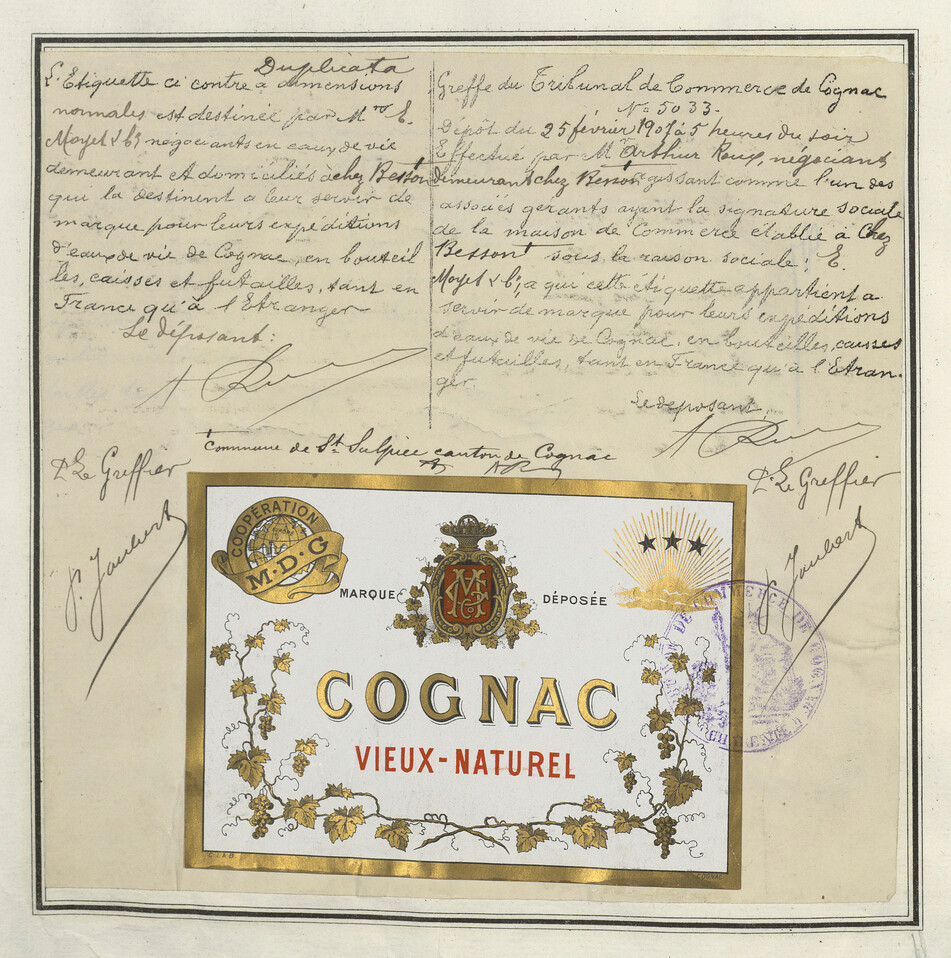 Duplicata
L'Etiquette ci contre a dimensions
normales est destinée par Mrs E.
Moyet & Cie négociants en eaux de vie
demeurant et domiciliés à chez Besson
qui la destinent a leur servir de
marque pour leurs expéditions
d'eaux de vie de Cognac, en bouteil
les, caisses et futailles, tant en
France qu'à l'Etranger
Le déposant:
Greffe du Tribunal de Commerce de Cognac
No 5033.
Dépôt du 25 février 1907 à 5 heures du soir
Effectué par Mr Arthur Roux, négociant
demeurant chez Besson agissant comme l'un des
associés gerants ayant la signature sociale
de la maison de Commerce etablie à Chez
Besson sous la raison sociale: E.
Moyet & Cie, a qui cette étiquette appartient a
servir de marque pour leurs expéditions
d'eaux de vie de Cognac, en bouteilles, caisses
et futailles, tant en France qu'à l'Etran-
ger.
Le deposant,
Commune de St Sulpice canton de Cognac
Pr Le Greffier
P. Joubert
Pr Le Greffier
P. Joubert
COOPÉRATION
M·D·G
MARQUE DÉPOSÉE
COGNAC
VIEUX-NATUREL
COGNAC
DE COMMERCE DE COGNAC